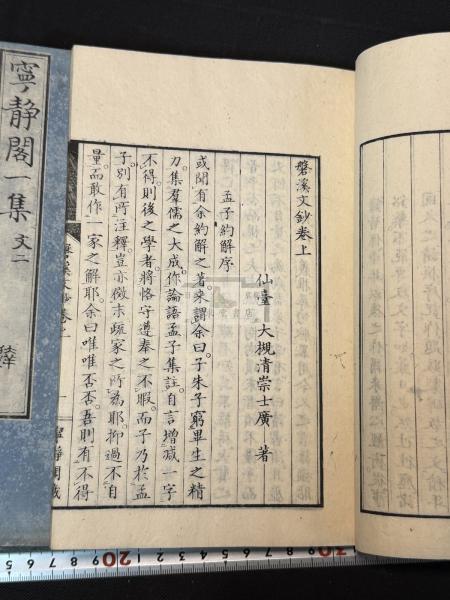 磐溪文鈔卷上
仙臺 大槻清崇士廣 著
孟子約解序
或聞有余約解之著。來謂余曰。子朱子窮畢生之精
力。集羣儒之大成。作論語孟子集註。自言增減一字
不得。則後之學者。將恪守遵奉之不暇。而子乃於孟
子。別有所注釋。豈亦微末疏家之所為耶。抑過不自
量。而敢作一家之解耶。余曰。唯唯否否。吾則有不得
磐溪文鈔卷上
一
寧靜閣藏
寧靜閣一集
文二